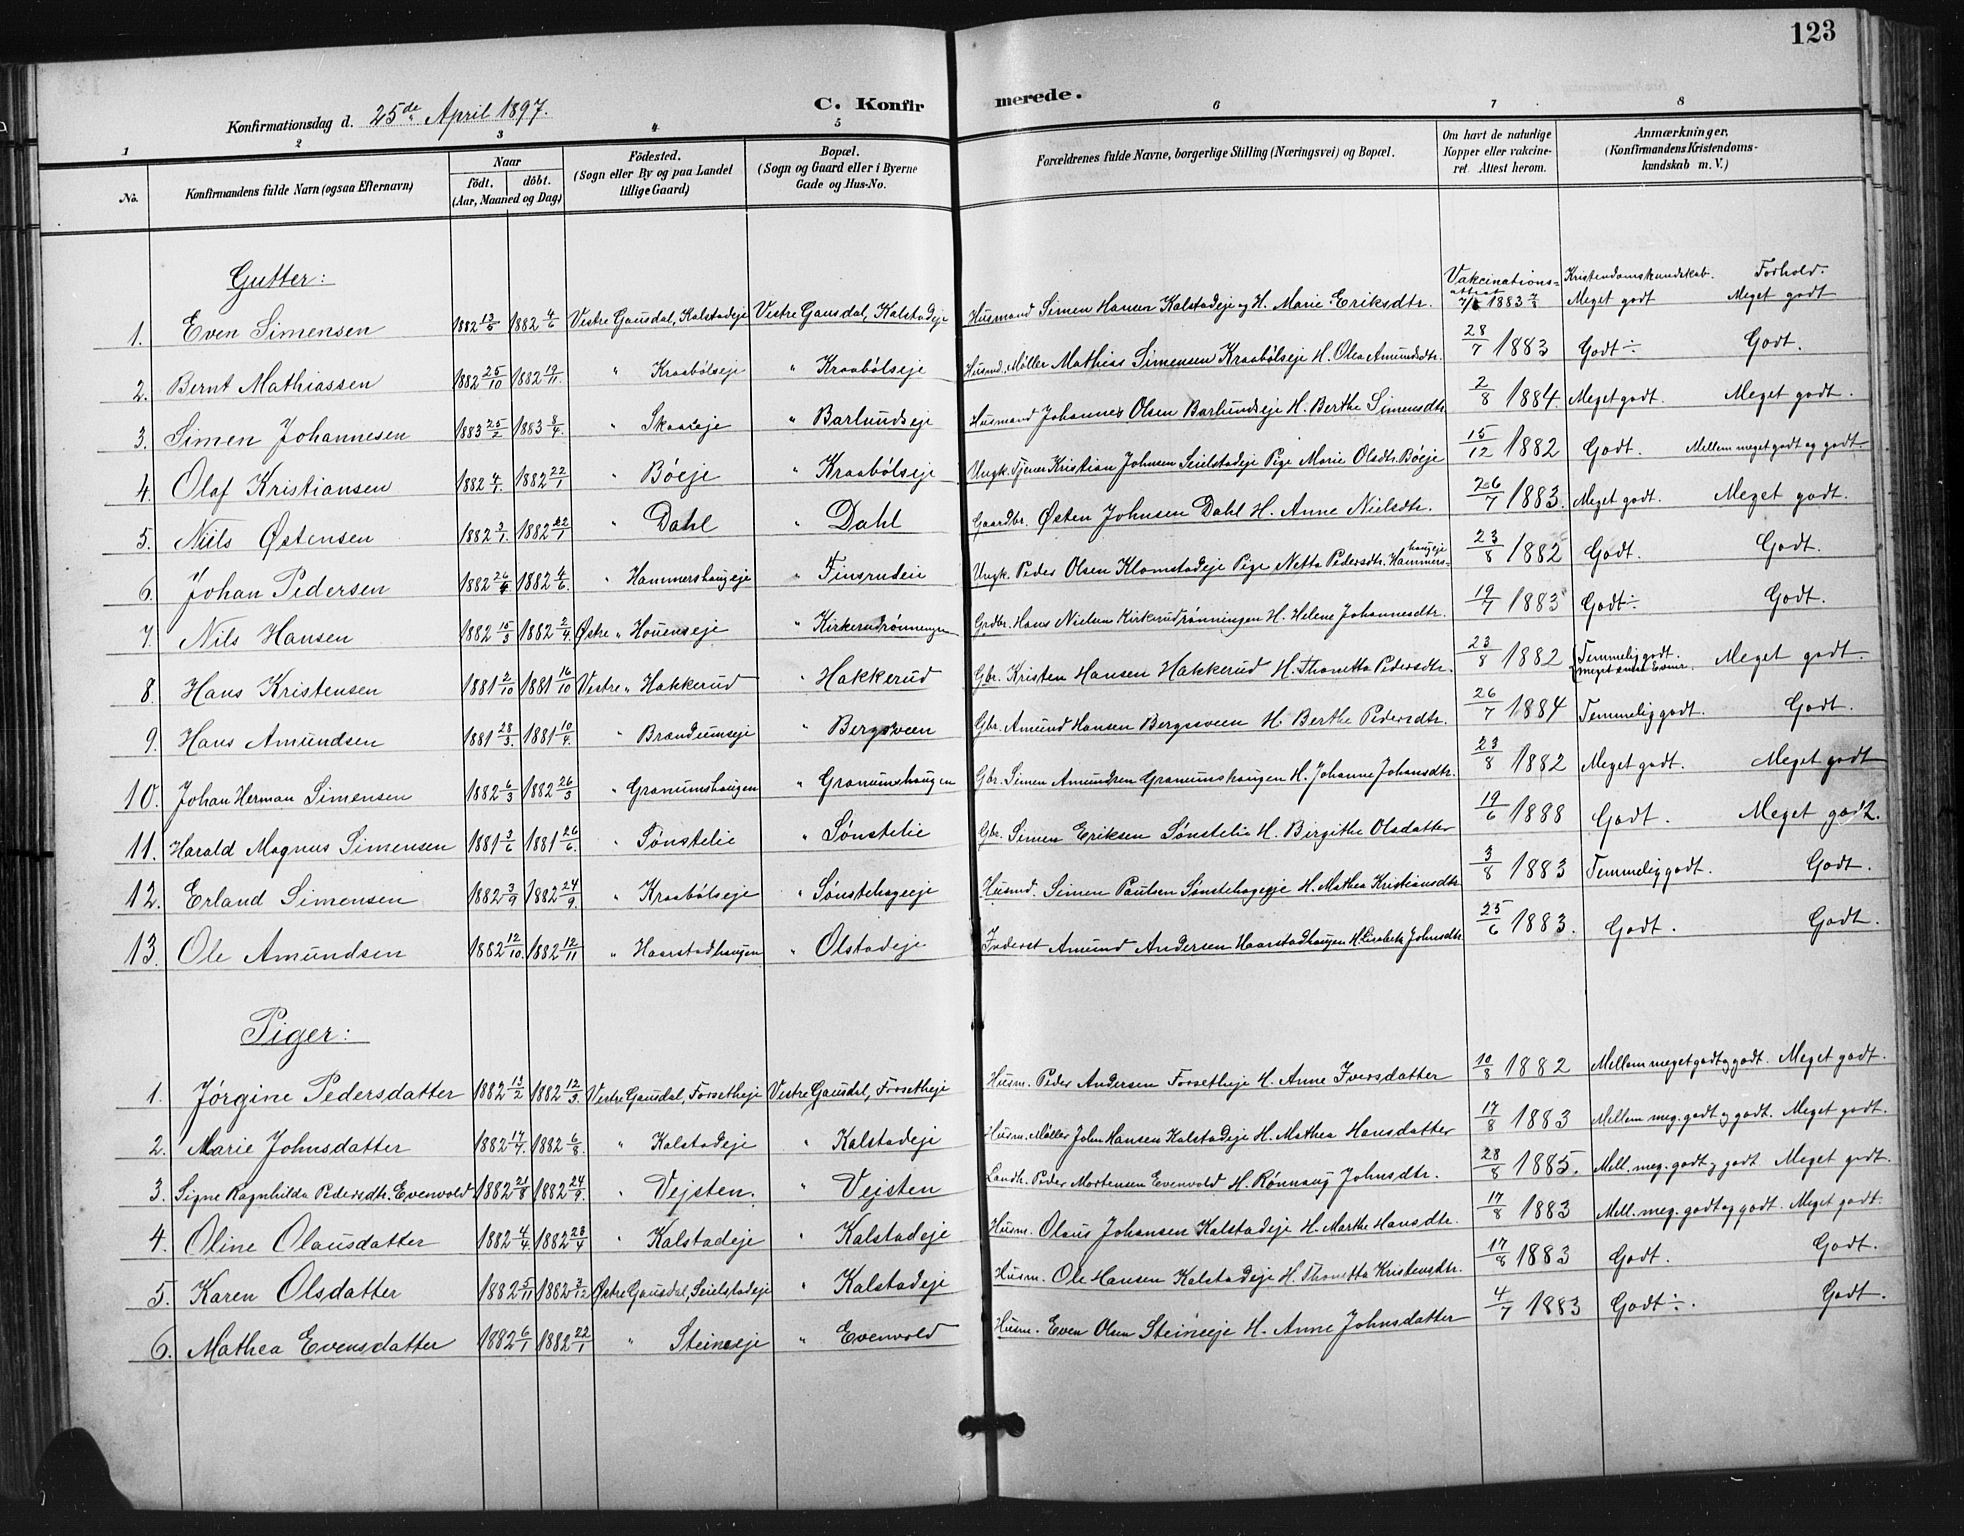 123
C. Konfirmerede.
Konfirmationsdag d. 25de April 1897.
1 2 3 4 5 6 7 8
No. Konfirmandens fulde Navn (ogsaa Efternavn) Naar født. døbt. (Aar, Maaned og Dag) Fødested. (Sogn eller By og paa Landet tillige Gaard) Bopæl. (Sogn og Gaard eller i Byerne Gade og Hus-No. Forældrenes fulde Navne, borgerlige Stilling (Næringsvei) og Bopæl. Om havt de naturlige Kopper eller vakcineret. Attest herom. Anmærkninger, (Konfirmandens Kristendomskundskab m. V.)
Gutter: Vakcinationsattest Kristendomskundskab. Forhold.
1. Even Simensen 1882 13/5 1882 4/6 Vestre Gausdal, Kalstadeje Vestre Gausdal, Kalstadeje Husmand Simen Hansen Kalstadeje og H. Marie Eriksdtr. 1883 Meget godt Meget godt
2. Bernt Mathiassen 1882 25/10 1882 19/11. " Kraabølseje " Kraabølseje Husmd. Møller Mathias Simensen Kraabølseje H. Olea Amundsdtr. 28/7 1883 Godt ÷ Godt.
3. Simen Johannesen 1883 25/2 1883 8/4. " Skaaeje " Barlundseje Husmand Johannes Olsen Barlundseje H. Berthe Simensdtr. 2/8 1884. Meget godt. Meget godt.
4. Olaf Kristiansen 1882 4/1. 1882 22/1 " Bøeje " Kraabølseje Ungk. Tjener Kristian Johnsen Seielstadeje Pige Marie Olsdtr. Bøeje 15/12 1882 Godt. Mellem meget godt og godt
5. Niels Østensen 1882 3/1. 1882 22/1 " Dahl " Dahl Gaardbr. Østen Johnsen Dahl H. Anne Nielsdtr. 26/7 1883. Meget godt. Meget godt.
6. Johan Pedersen 1882 26/4 1882 4/6. " Hammershaugeje " Finsrudeie Ungk. Peder Olsen Klomstadeje Pige Netta Pedersdtr. Hammershaugeje 23/8 1882 Godt. Godt.
7. Nils Hansen 1882 15/3 1882 2/4. Østre " Houenseje " Kirkerudrønningen Grdbr. Hans Nielsen Kirkerudrønningen H. Helene Johannesdtr. 19/7 1883 Godt ÷ Godt.
8. Hans Kristensen 1881 2/10 1881 16/10 Vestre " Hakkerud " Hakkerud Gbr. Kristen Hansen Hakkerud H. Thonetta Pedersdtr. 23/8 1882 Temmelig godt. Meget godt.
9. Hans Amundsen 1881 28/3. 1881 10/4. " Brandumseje " Bergsveen Gbr. Amund Hansen Bergsveen H. Berthe Pedersdtr. 26/7 1884 Temmelig godt. Godt.
10. Johan Herman Simensen 1882 6/3 1882 26/3 " Granumshaugen " Granumshaugen Gbr. Simen Amundsen Granumshaugen H. Johanne Johansdtr. 23/8 1882 Meget godt. Meget godt
11. Harald Magnus Simensen 1881 3/6 1881 26/6. " Sønstelie " Sønstelie Gbr. Simen Eriksen Sønstelie H. Birgithe Olsdatter 19/6 1888 Godt. Meget godt.
12. Erland Simensen 1882 3/9 1882 24/9. " Kraabølseje " Sønstehageeje Husmd. Simen Paulsen Sønstehageeje H. Mathea Kristiansdtr. 3/8 1883 Temmelig godt. Godt.
13. Ole Amundsen 1882 12/10. 1882 12/11 " Haarstadhaugen " Olstadeje Inderst Amund Andersen Haarstadhaugen H. Lisabeth Johnsdtr. 25/6 1883. Godt. Godt.
Piger:
1. Jørgine Pedersdatter 1882 13/2 1882 12/3. Vestre Gausdal, Forsetheje Vestre Gausdal, Forsetheje Husm. Peder Andersen Forsetheje H. Anne Iversdatter 10/8 1882 Mellem meget godt og godt. Meget godt.
2. Marie Johnsdatter 1882 17/7. 1882 6/8. " Kalstadeje " Kalstadeje Husm. Møller John Hansen Kalstadeje H. Mathea Hansdatter 17/8 1883 Mellem meg. godt og godt. Meget godt.
3. Signe Ragnhilda Pedersdtr. Evenvold 1882 21/8 1882 24/9. " Vejsten. " Vejsten Landh. Peder Mortensen Evenvold H. Rønnaug Johnsdtr. 28/8 1885. Mell. meg. godt og godt Meget godt.
4. Oline Olausdatter 1882 4/4. 1882 23/4 " Kalstadeje " Kalstadeje Husm. Olaus Johansen Kalstadeje H. Marthe Hansdtr. 17/8 1883 Mell. meg. godt og godt. Meget godt.
5. Karen Olsdatter 1882 5/11 1882 3/12 Østre Gausdal, Seielstadeje " Kalstadeje Husm. Ole Hansen Kalstadeje H. Thonetta Kristensdtr. 17/8 1883 Godt. Godt.
6. Mathea Evensdatter 1882 6/1 1882 22/1 " Steineeje " Evenvold Husm. Even Olsen Steineeje H. Anne Johnsdatter 4/7 1883 Godt ÷. Godt.